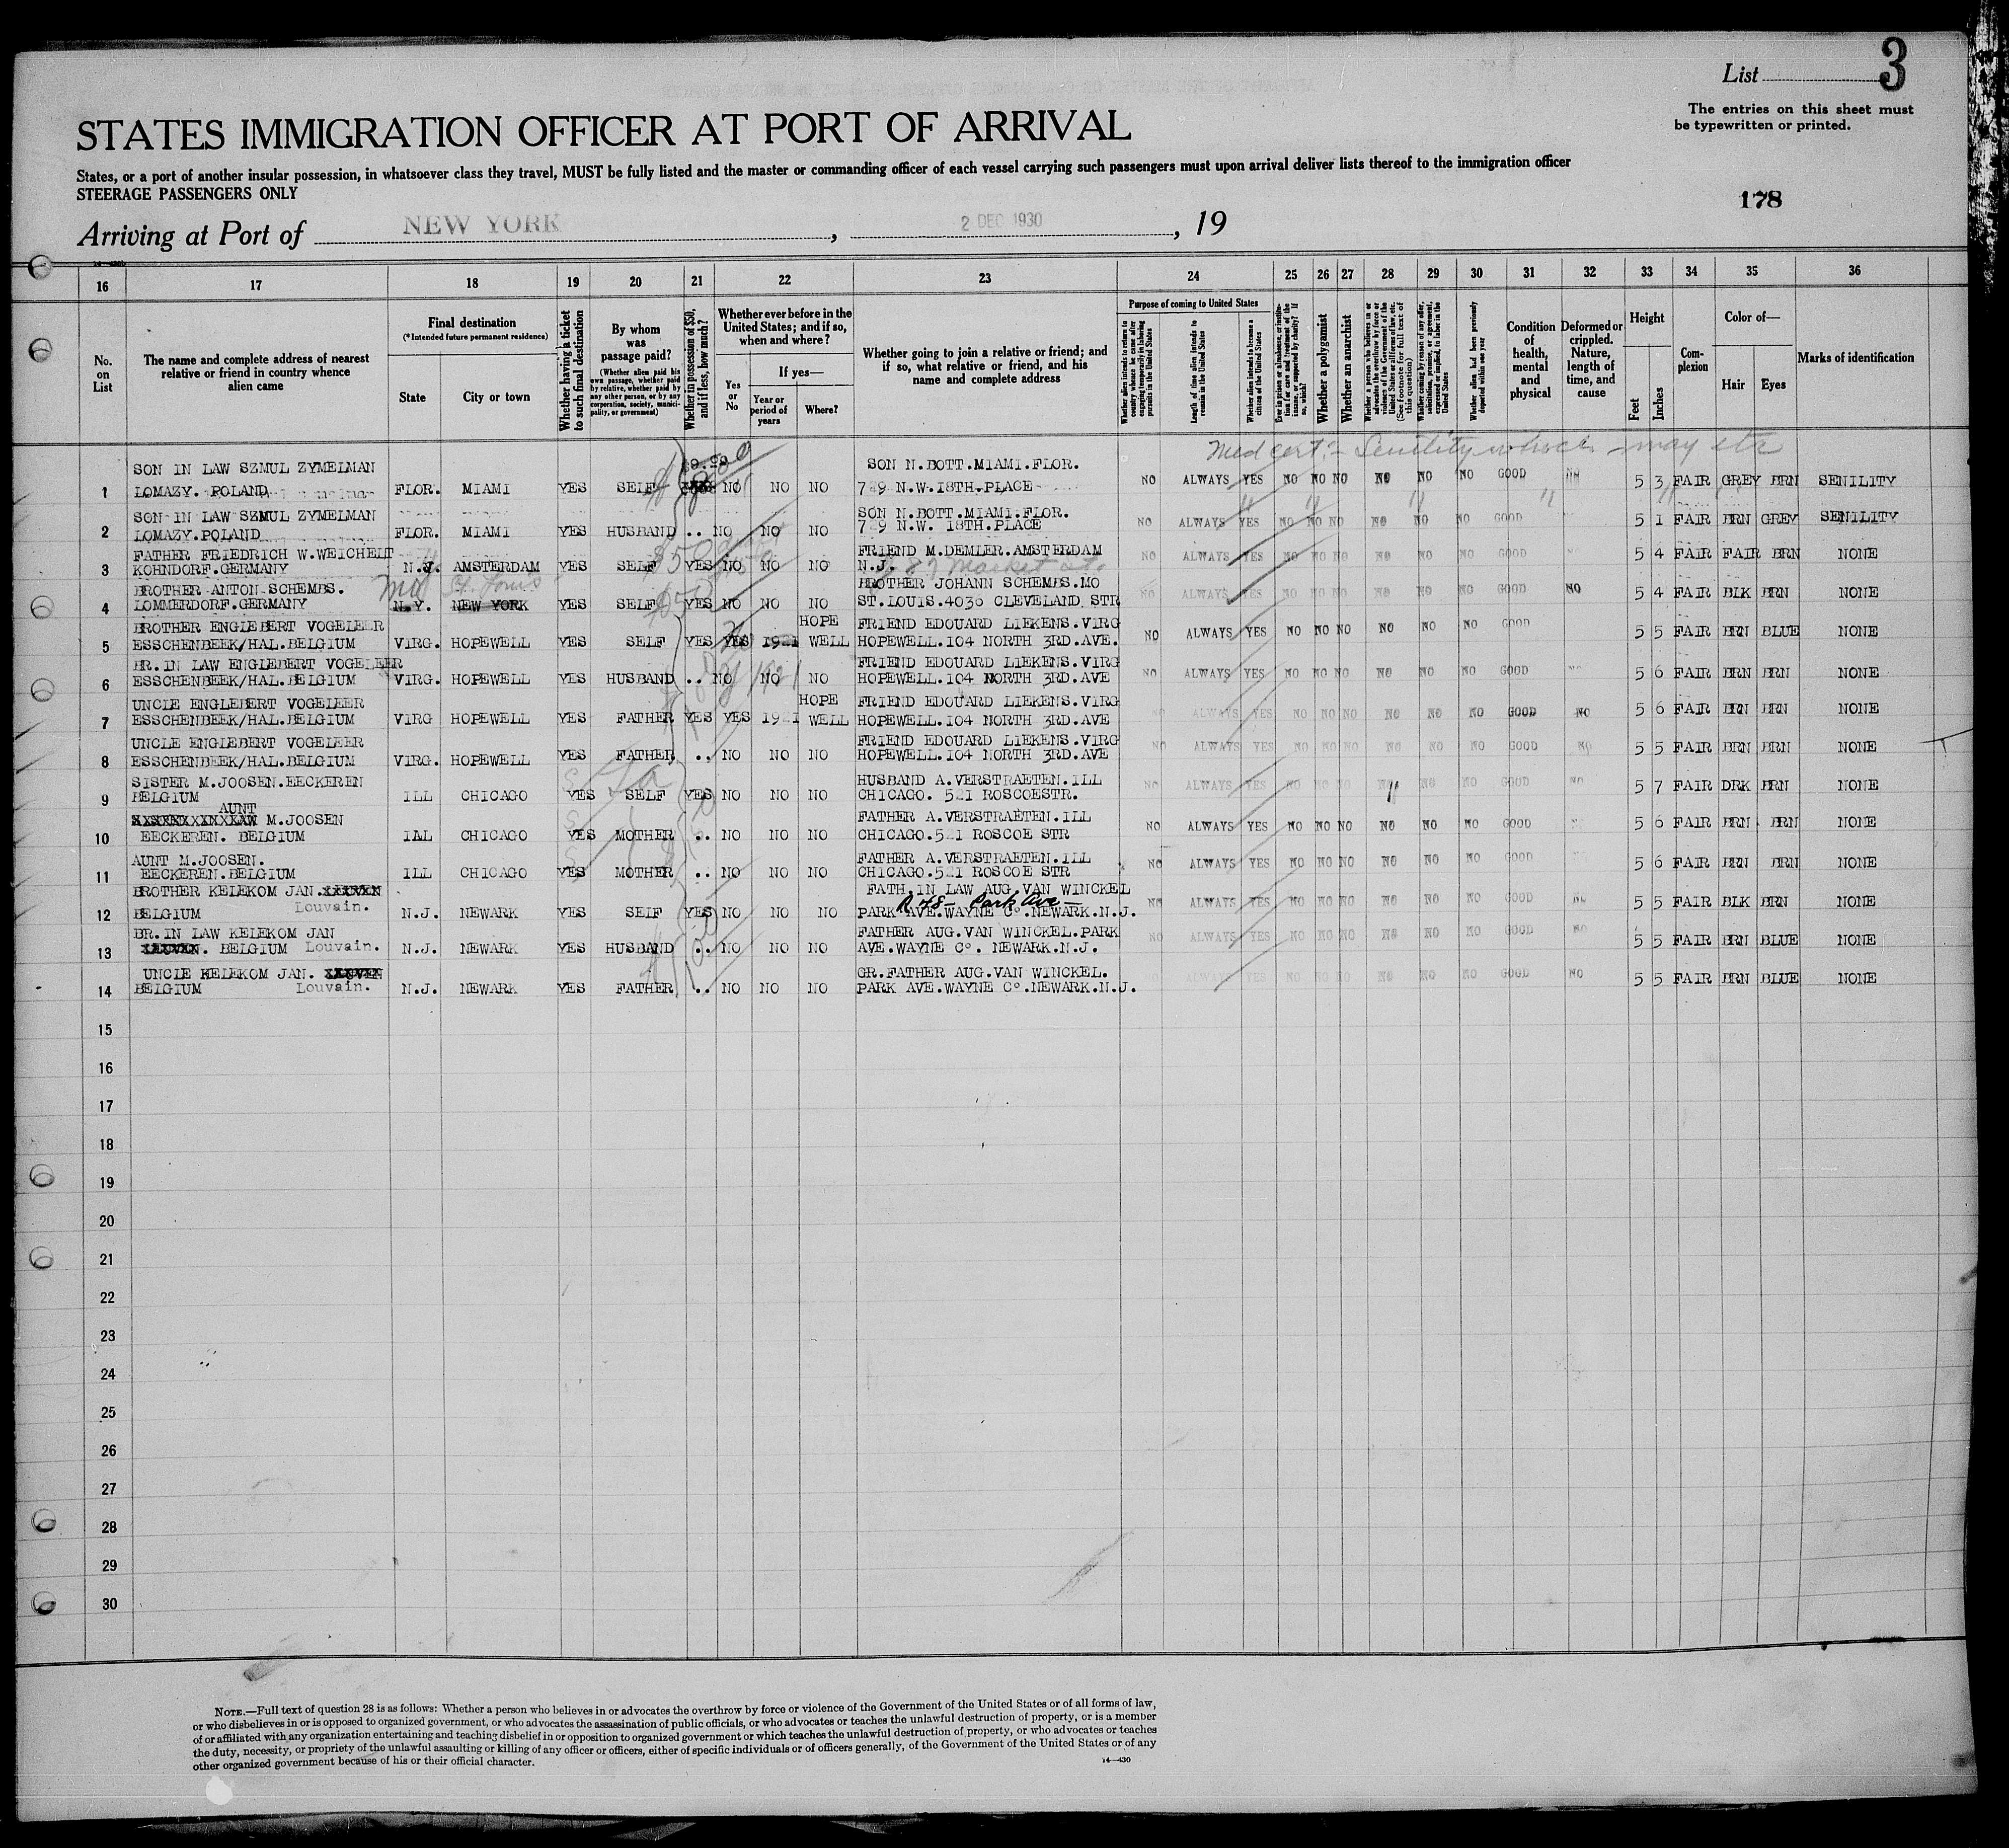 List 3
The entries on this sheet must
be typewritten or printed.
STATES IMMIGRATION OFFICER AT PORT OF ARRIVAL
States, or a port of another insular possession, in whatsoever class they travel, MUST be fully listed and the master or commanding officer of each vessel carrying such passengers must upon arrival deliver lists thereof to the immigration officer
STEERAGE PASSENGERS ONLY
178
Arriving at Port of NEW YORK, 2 DEC 1930, 19
16 17 18 19 20 21 22 23 24 25 26 27 28 29 30 31 32 33 34 35 36
No. on List
The name and complete address of nearest relative or friend in country whence alien came
Final destination
(*Intended future permanent residence)
State
City or town
Whether having a ticket to such final destination
By whom was passage paid?
(Whether alien paid his own passage, whether paid by relative, whether paid by any other person, or by any corporation, society, municipality, or government)
Whether in possession of $50, and if less, how much?
Whether ever before in the United States; and if so, when and where?
Yes or No
If yes—
Year or period of years
Where?
Whether going to join a relative or friend; and if so, what relative or friend, and his name and complete address
Purpose of coming to United States
Whether alien intends to return to country whence he came after engaging temporarily in laboring pursuits in the United States
Length of time alien intends to remain in the United States
Whether alien intends to become a citizen of the United States
Ever in prison or almshouse, or institution for care and treatment of the insane, or supported by charity? If so, which?
Whether a polygamist
Whether an anarchist
Whether a person who believes in or advocates the overthrow by force or violence of the Government of the United States or all forms of law, etc. (See footnote for full text of this question)
Whether coming by reason of any offer, solicitation, promise, or agreement, expressed or implied, to labor in the United States
Whether alien had been previously deported within one year
Condition of health, mental and physical
Deformed or crippled. Nature, length of time, and cause
Height
Feet
Inches
Complexion
Color of—
Hair
Eyes
Marks of identification
Med cert:- Senility which may etc
SON IN LAW SZMUL ZYMELMAN SON N.BOTT.MIAMI.FLOR.
1 LOMAZY. POLAND FLOR. MIAMI YES SELF NO NO NO 729 N.W.18TH.PLACE NO ALWAYS YES NO NO NO NO NO NO GOOD NO 5 3 FAIR GREY BRN SENILITY
SON IN LAW SZMUL ZYMELMAN SON N.BOTT.MIAMI.FLOR.
2 LOMAZY.POLAND FLOR. MIAMI YES HUSBAND .. NO NO NO 729 N.W. 18TH.PLACE NO ALWAYS YES NO NO NO NO NO NO GOOD 5 1 FAIR BRN GREY SENILITY
FATHER FRIEDRICH W.WEICHELT FRIEND M.DEMLER.AMSTERDAM
3 KOHNDORF.GERMANY N.J. AMSTERDAM YES SELF $50 YES NO NO NO N.J. 87 Market St. NO ALWAYS YES NO NO NO NO NO NO GOOD 5 4 FAIR FAIR BRN NONE
BROTHER ANTON SCHEMBS. Mo St. Louis BROTHER JOHANN SCHEMBS.MO
4 LOMMERDORF.GERMANY N.Y. NEW YORK YES SELF $50 YES NO NO NO ST.LOUIS.4036 CLEVELAND STR NO ALWAYS YES NO NO NO NO NO NO GOOD NO 5 4 FAIR BLK BRN NONE
BROTHER ENGLEBERT VOGELEER HOPE FRIEND EDOUARD LIEKENS.VIRG
5 ESSCHENBEEK/HAL.BELGIUM VIRG. HOPEWELL YES SELF YES YES 1921 WELL HOPEWELL.104 NORTH 3RD.AVE. NO ALWAYS YES NO NO NO NO NO NO GOOD 5 5 FAIR BRN BLUE NONE
BR.IN LAW ENGLEBERT VOGELEER FRIEND EDOUARD LIEKENS.VIRG
6 ESSCHENBEEK/HAL.BELGIUM VIRG. HOPEWELL YES HUSBAND .. NO NO NO HOPEWELL.104 NORTH 3RD.AVE NO ALWAYS YES NO NO NO NO NO NO GOOD NO 5 6 FAIR BRN BRN NONE
UNCLE ENGLEBERT VOGELEER HOPE FRIEND EDOUARD LIEKENS.VIRG
7 ESSCHENBEEK/HAL.BELGIUM VIRG HOPEWELL YES FATHER YES YES 1921 WELL HOPEWELL.104 NORTH 3RD.AVE NO ALWAYS YES NO NO NO NO NO NO GOOD NO 5 6 FAIR BRN BRN NONE
UNCLE ENGLEBERT VOGELEER FRIEND EDOUARD LIEKENS.VIRG
8 ESSCHENBEEK/HAL.BELGIUM VIRG. HOPEWELL YES FATHER .. NO NO NO HOPEWELL.104 NORTH 3RD.AVE NO ALWAYS YES NO NO NO NO NO NO GOOD NO 5 5 FAIR BRN BRN NONE
SISTER M.JOOSEN.EECKEREN HUSBAND A.VERSTRAETEN.ILL
9 BELGIUM ILL CHICAGO YES SELF YES NO NO NO CHICAGO. 521 ROSCOESTR. NO ALWAYS YES NO NO NO NO NO NO GOOD NO 5 7 FAIR DRK BRN NONE
AUNT M.JOOSEN FATHER A.VERSTRAETEN.ILL
10 EECKEREN. BELGIUM IAL CHICAGO YES MOTHER .. NO NO NO CHICAGO.521 ROSCOE STR NO ALWAYS YES NO NO NO NO NO NO GOOD 5 6 FAIR BRN BRN NONE
AUNT M.JOOSEN. FATHER A.VERSTRAETEN.ILL
11 EECKEREN.BELGIUM ILL CHICAGO YES MOTHER .. NO NO NO CHICAGO.521 ROSCOE STR NO ALWAYS YES NO NO NO NO NO NO GOOD 5 6 FAIR BRN BRN NONE
BROTHER KELEKOM JAN. FATH.IN LAW AUG.VAN WINCKEL
R 48- Park Ave-
12 BELGIUM Louvain. N.J. NEWARK YES SELF YES NO NO NO PARK AVE.WAYNE Co.NEWARK.N.J. NO ALWAYS YES NO NO NO NO NO NO GOOD NO 5 5 FAIR BLK BRN NONE
BR.IN LAW KELEKOM JAN FATHER AUG.VAN WINCKEL.PARK
13 BELGIUM Louvain. N.J. NEWARK YES HUSBAND .. NO NO NO AVE.WAYNE Co. NEWARK.N.J. NO ALWAYS YES NO NO NO NO NO NO GOOD NO 5 5 FAIR BRN BLUE NONE
UNCLE KELEKOM JAN. GR.FATHER AUG.VAN WINCKEL.
14 BELGIUM Louvain. N.J. NEWARK YES FATHER .. NO NO NO PARK AVE.WAYNE Co.NEWARK.N.J. ALWAYS YES NO NO NO NO NO NO GOOD NO 5 5 FAIR BRN BLUE NONE
15
16
17
18
19
20
21
22
23
24
25
26
27
28
29
30
NOTE.—Full text of question 28 is as follows: Whether a person who believes in or advocates the overthrow by force or violence of the Government of the United States or of all forms of law,
or who disbelieves in or is opposed to organized government, or who advocates the assassination of public officials, or who advocates or teaches the unlawful destruction of property, or is a member
of or affiliated with any organization entertaining and teaching disbelief in or opposition to organized government or which teaches the unlawful destruction of property, or who advocates or teaches
the duty, necessity, or propriety of the unlawful assaulting or killing of any officer or officers, either of specific individuals or of officers generally, of the Government of the United States or of any
other organized government because of his or their official character.
14—430